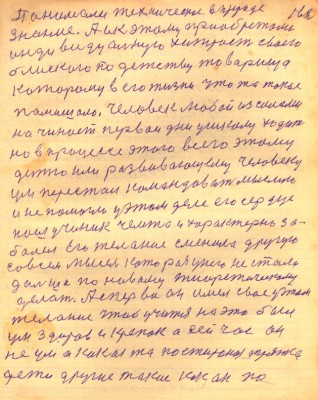 Понимали техническое в природе
знание. А к этому приобретали
индивидуальную хитрость своего
близкого по детству товарища
которому в его жизни что то такое
помешало. Человек молодой из самам
начинает первой дни у школу ходить
но в процессе этого всего этому
детю или развивающему человеку
ум перестал командовать мыслию
и не помогло у этом деле его сердце
ноил ученик чемто и характерно за-
болел Его желание сменила другую
совсем мысль которая у него не стало
дальше по новому теоретическому
делат. А сперва он имел свое у этом
желание чтоб учится на это были
ум здоров и крепок а сей час он
не ум а какая та постирония тряжка
дети другие такие как он по